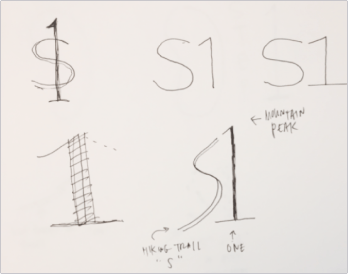 S1
S1
S1
← MOUNTAIN
PEAK
1
S1
HIKING TRAIL
"S"
ONE